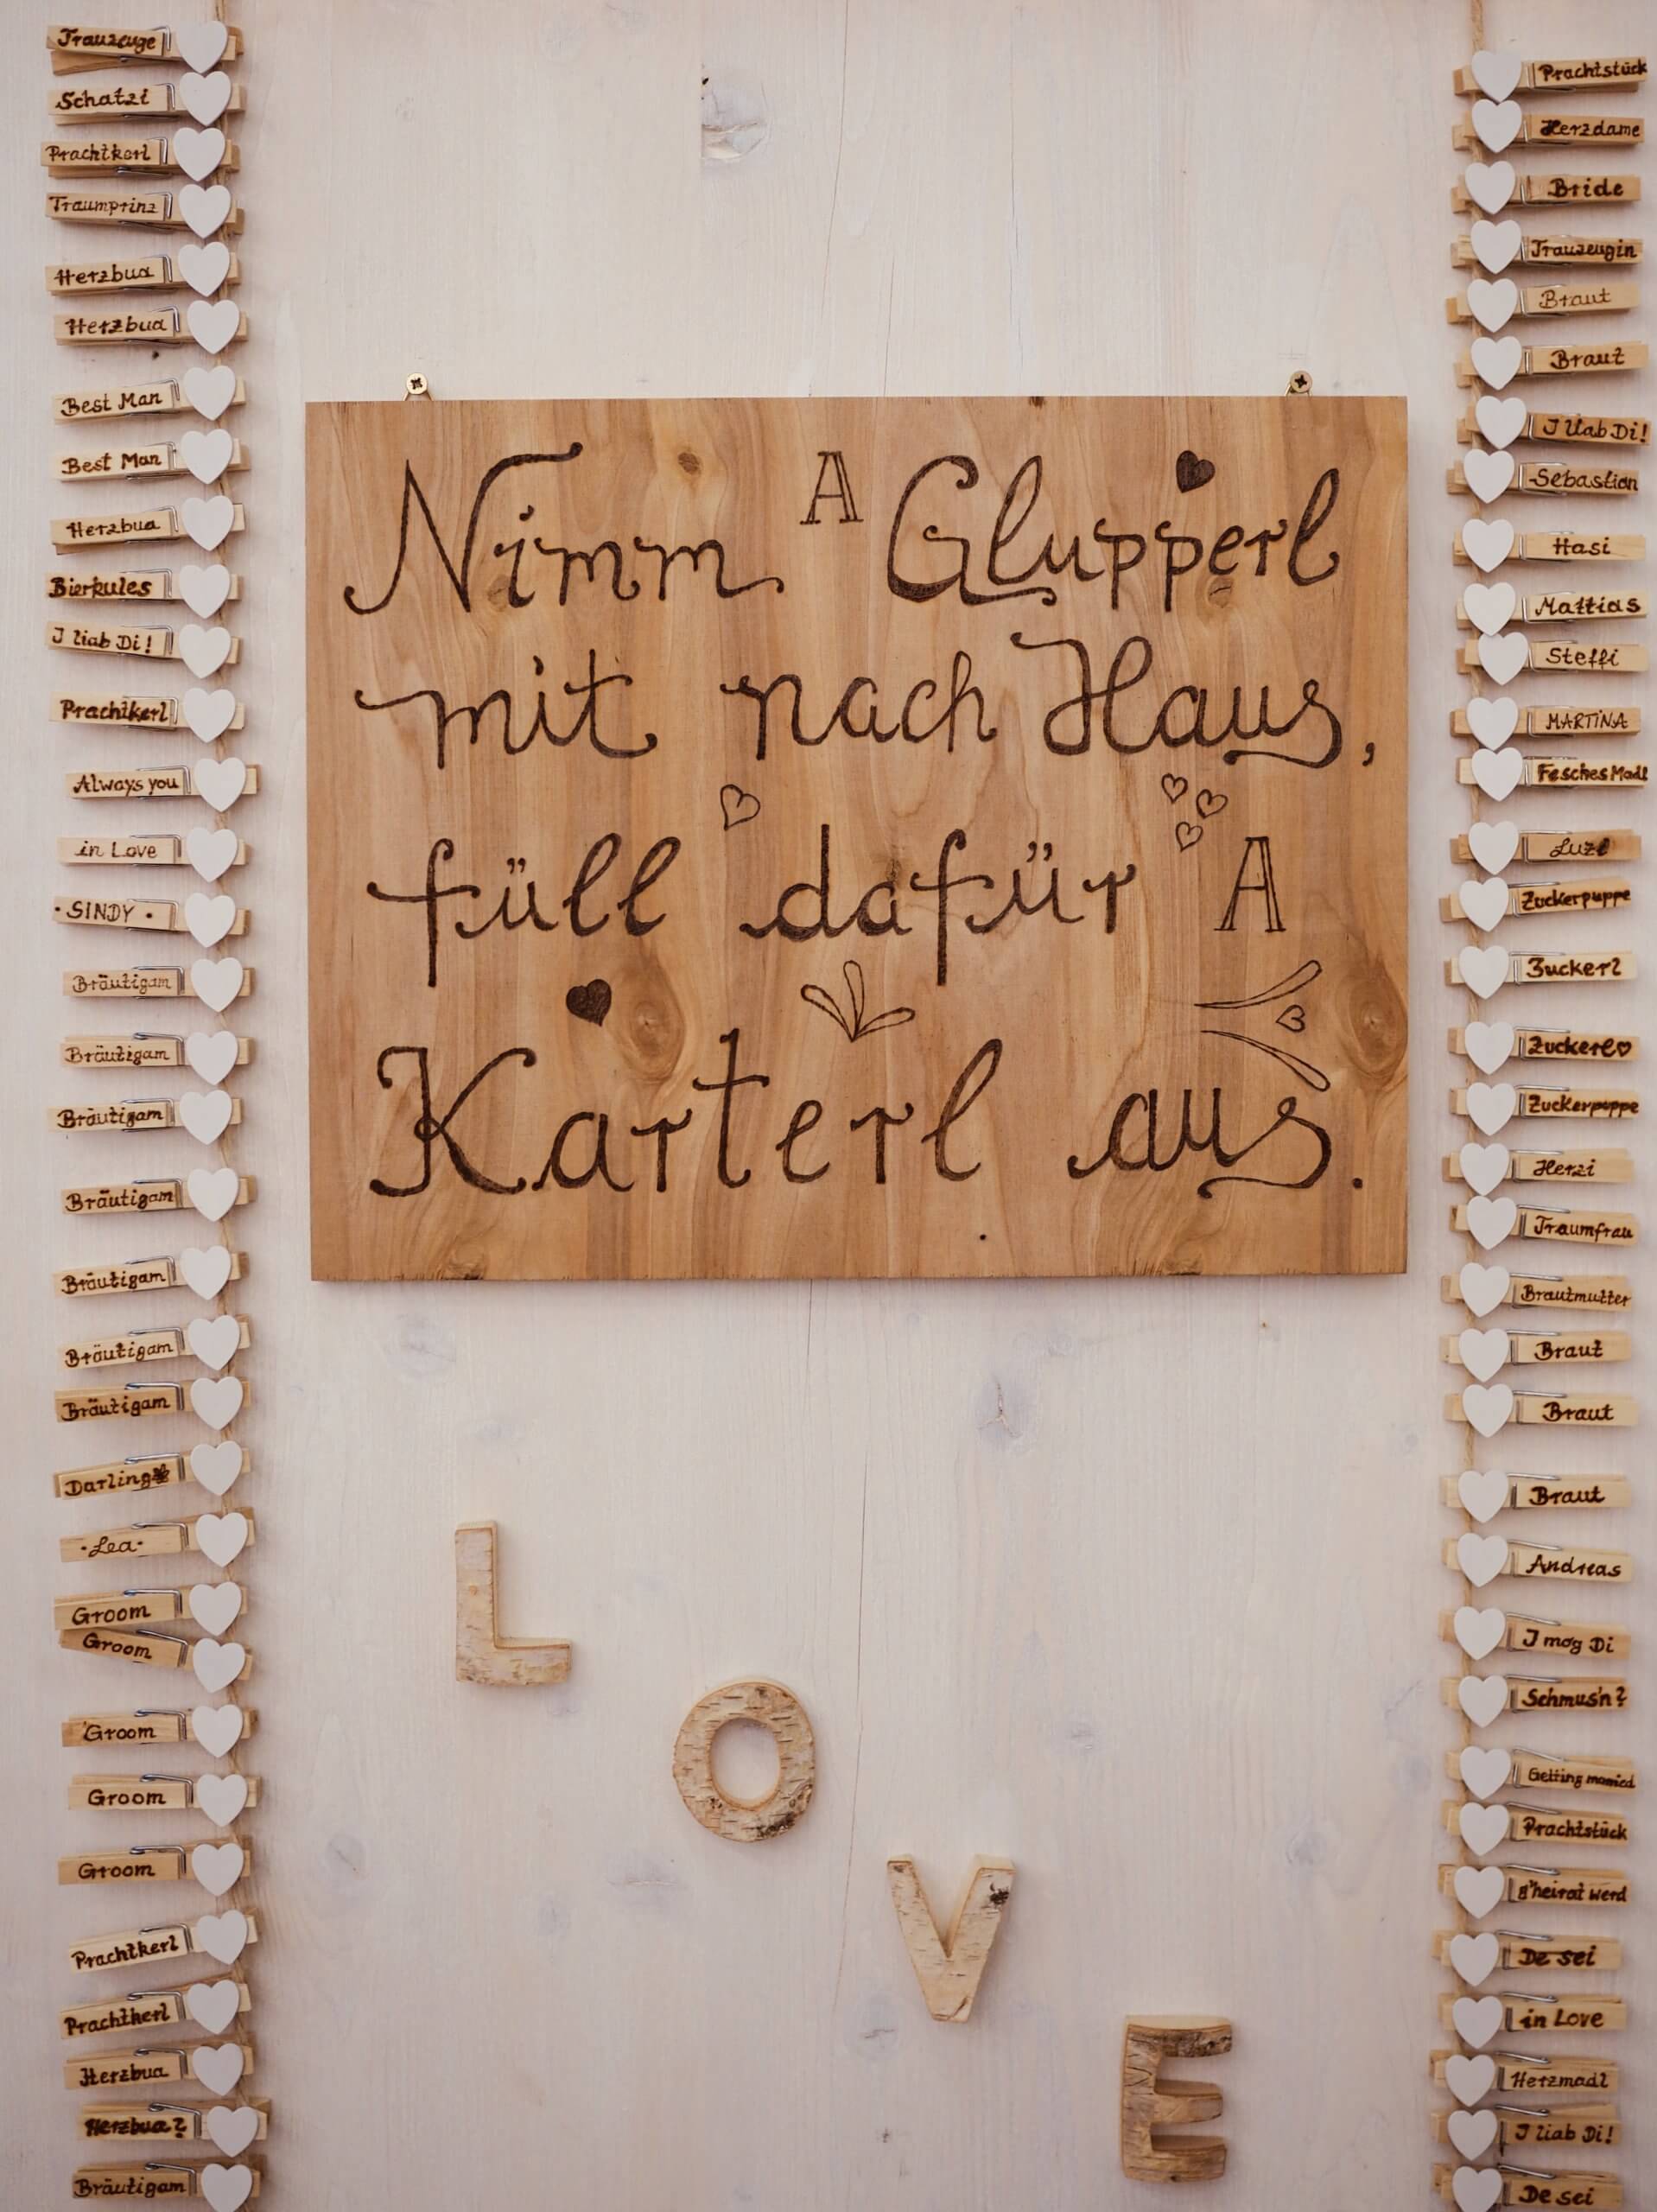 Trauzeuge
Schatzi
Prachtkerl
Traumprinz
Herzbua
Herzbua
Best Man
Best Man
Herzbua
Bierkules
I liab Di!
Prachtkerl
Always you
in Love
· SINDY ·
Bräutigam
Bräutigam
Bräutigam
Bräutigam
Bräutigam
Bräutigam
Bräutigam
Darling
·Lea·
Groom
Groom
Groom
Groom
Groom
Prachtkerl
Prachtkerl
Herzbua
Herzbua?
Bräutigam
Nimm A Glupperl
mit nach Haus,
füll dafür A
Karterl aus.
L
O
V
E
Prachtstück
Herzdame
Bride
Trauzeugin
Braut
Braut
I liab Di!
Sebastian
Hasi
Mattias
Steffi
MARTINA
Fesches Madl
Luzi
Zuckerpuppe
Zuckerl
Zuckerl♡
Zuckerpuppe
Herzi
Traumfrau
Brautmutter
Braut
Braut
Braut
Andreas
I mog Di
Schmus'n?
Getting married
Prachtstück
g'heirat werd
De sei
in Love
Herzmadl
I liab Di!
De sei